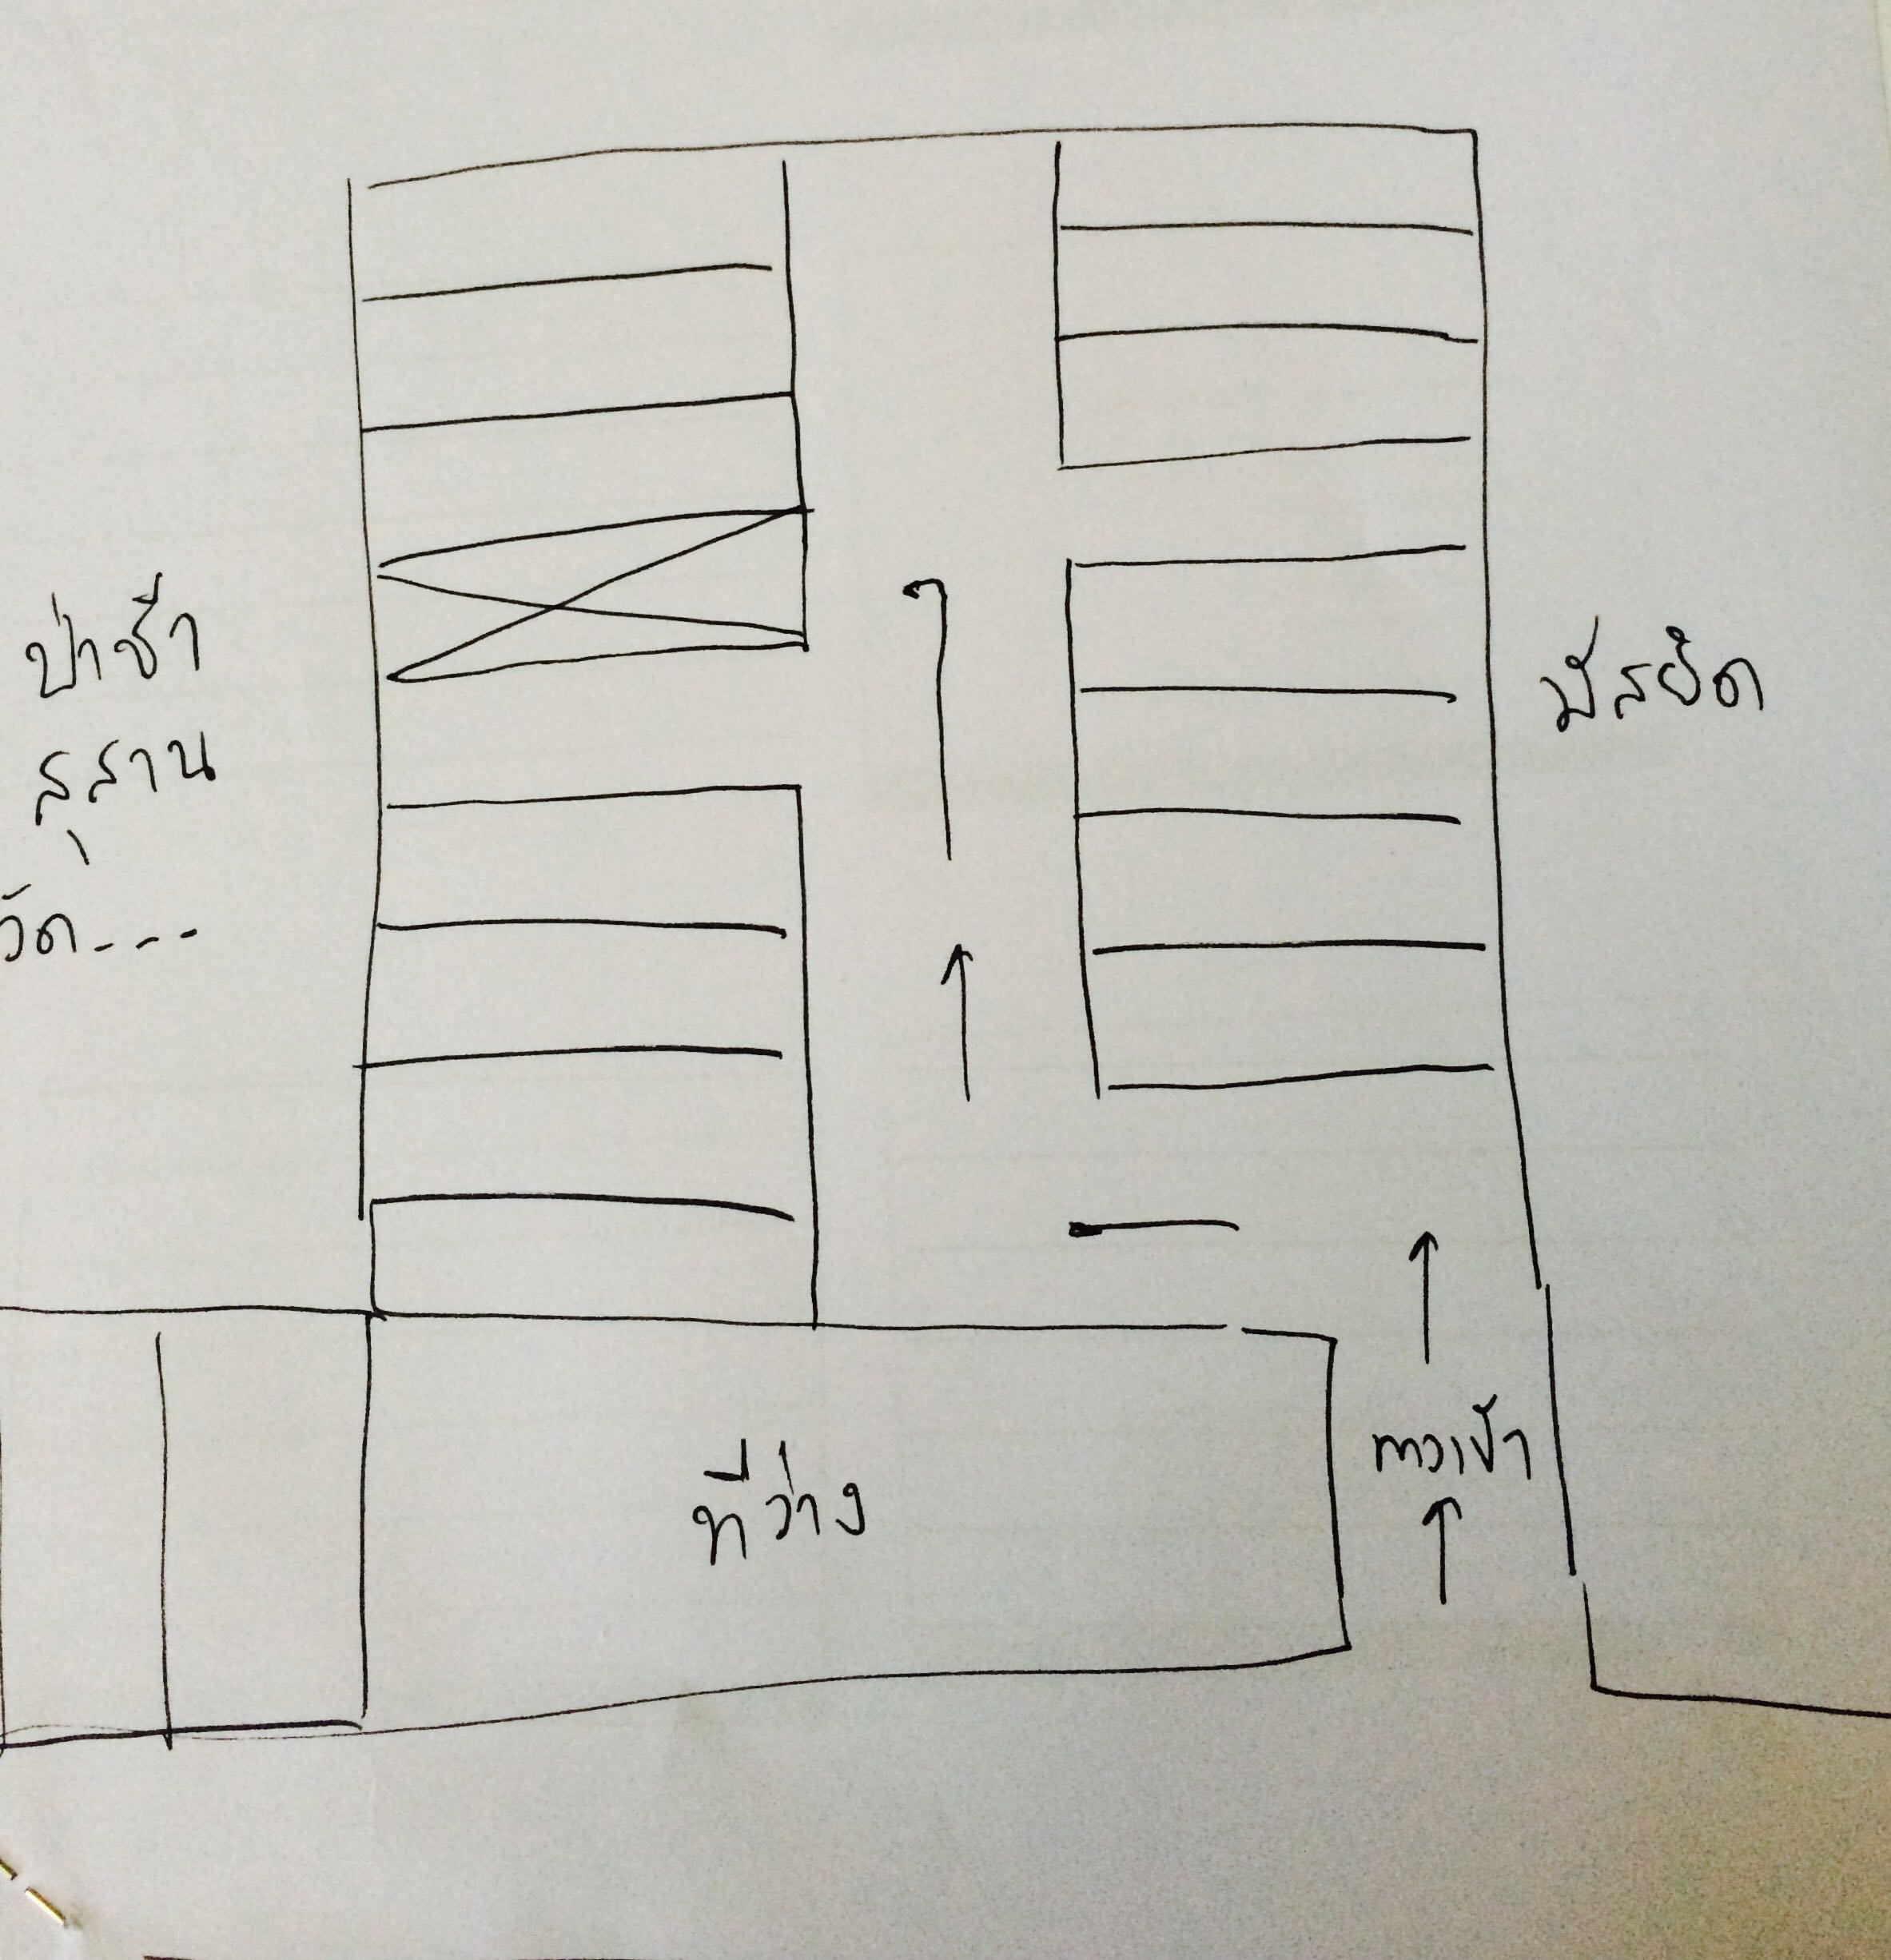 ป่าช้า
สุสาน
วัด---
มัสยิด
ทางเข้า
ที่ว่าง